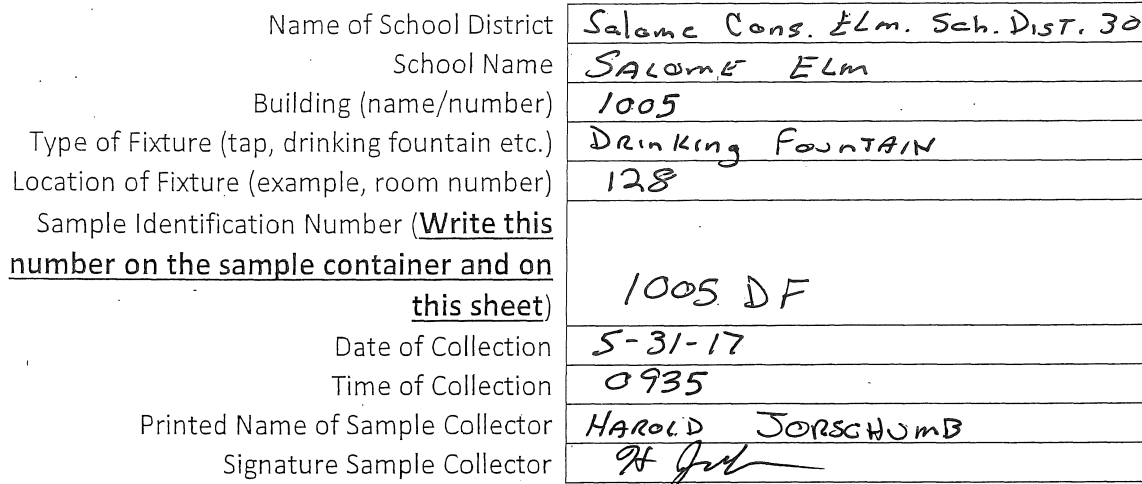 Name of School District Salome Cons. ELm. Sch. DIST. 30
School Name SALOME ELm
Building (name/number) 1005
Type of Fixture (tap, drinking fountain etc.) DRinking FounTAIN
Location of Fixture (example, room number) 128
Sample Identification Number (Write this
number on the sample container and on
this sheet) 1005 DF
Date of Collection 5-31-17
Time of Collection 0935
Printed Name of Sample Collector HAROLD JORSCHUMB
Signature Sample Collector